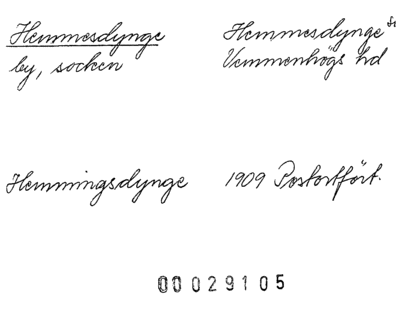 Hemmesdynge
by, socken
Hemmesdynge sn
Vemmenhögs hd
Hemmingsdynge
1909 Postortfört.
00029105